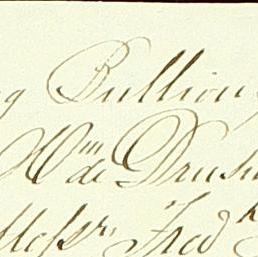 g Bullion
Wm de Drus
Messrs Fredk